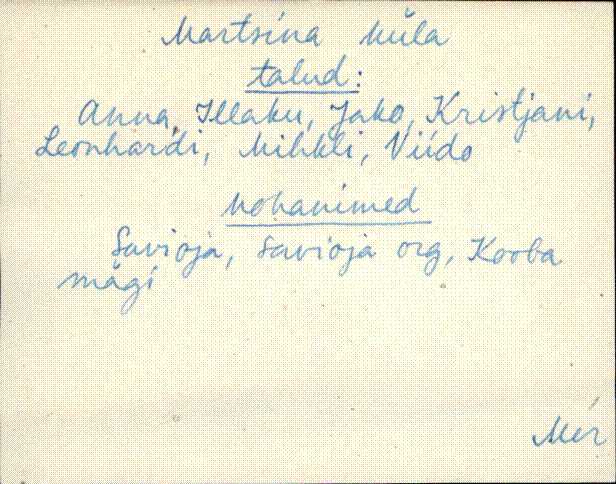 Martsina küla
talud:
Anna, Illaku, Jako, Kristjani,
Leonhardi, Mihkli, Viido
kohanimed
Savioja, Savioja org, Kooba
mägi
Mér